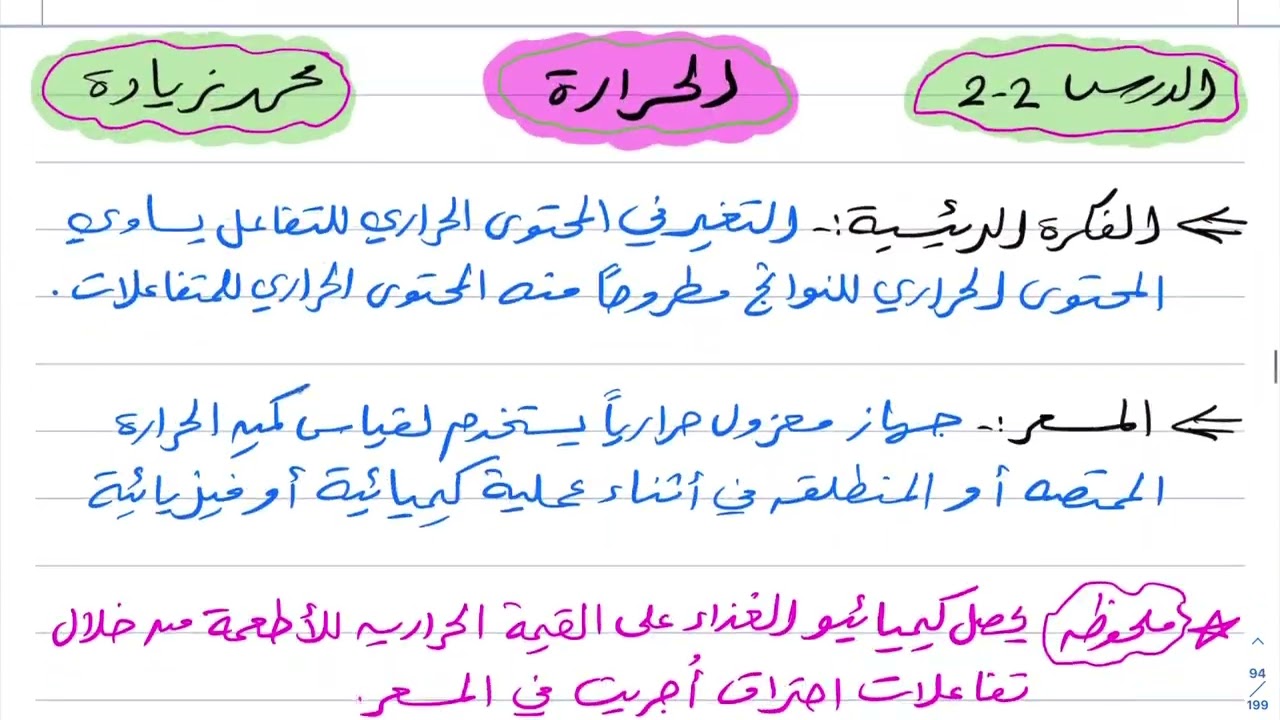 الدرس 2-2
الحرارة
محمد زيادة
الفكرة الرئيسية :- التغير في المحتوى الحراري للتفاعل يساوي
المحتوى الحراري للنواتج مطروحاً منه المحتوى الحراري للمتفاعلات .
المسعر :- جهاز معزول حرارياً يستخدم لقياس كميه الحرارة
الممتصه أو المنطلقه في أثناء عملية كيميائية أو فيزيائية
ملحوظه يحصل كيميائيو الغذاء على القيمة الحراريه للأطعمة من خلال
تفاعلات احتراق أُجريت في المسعر .
94
199